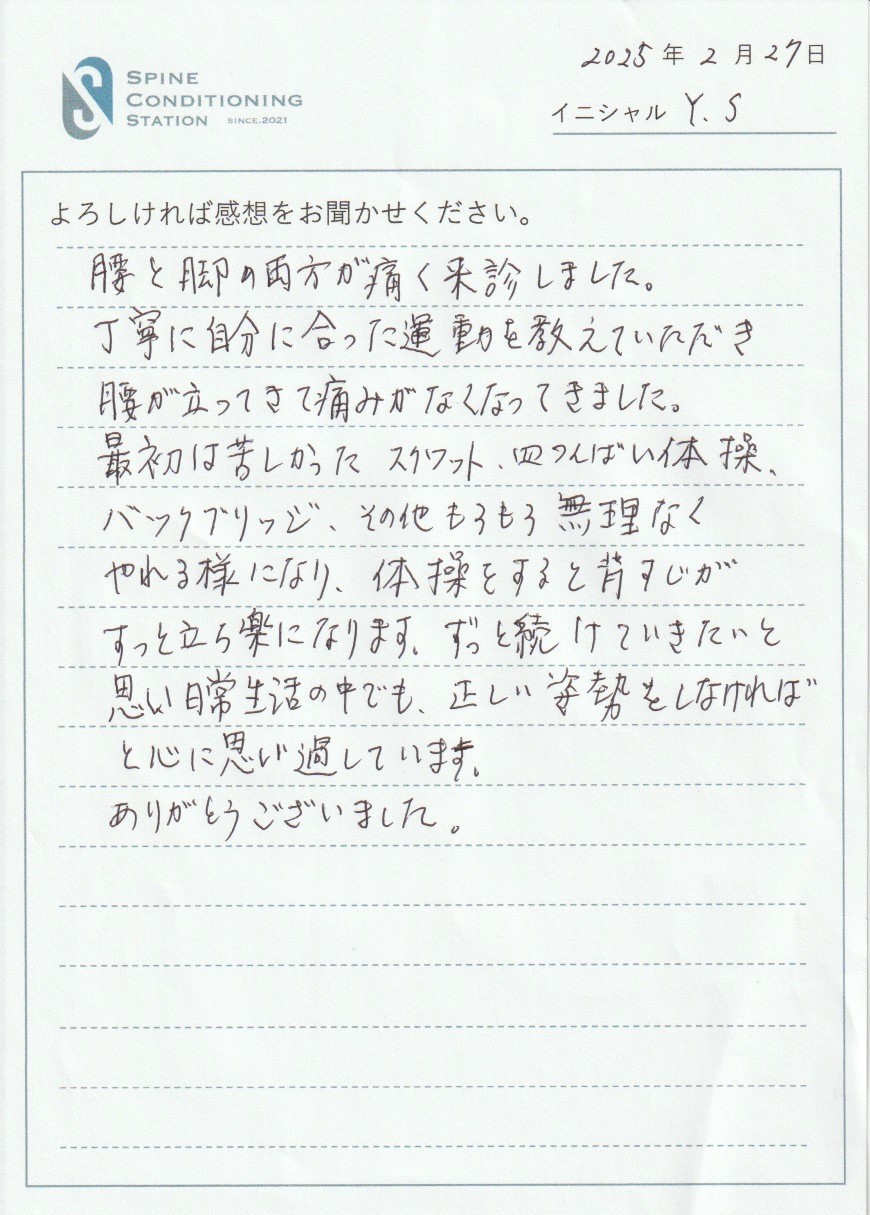 SPINE
CONDITIONING
STATION SINCE.2021
2025年2月27日
イニシャル Y.S
よろしければ感想をお聞かせください。
腰と脚の両方が痛く来診しました。
丁寧に自分に合った運動を教えていただき
腰が立ってきて痛みがなくなってきました。
最初は苦しかった スクワット、四つんばい体操、
バックブリッジ、その他もろもろ無理なく
やれる様になり、体操をすると背すじが
すっと立ち楽になります。ずっと続けていきたいと
思い日常生活の中でも、正しい姿勢をしなければ
と心に思い過しています。
ありがとうございました。